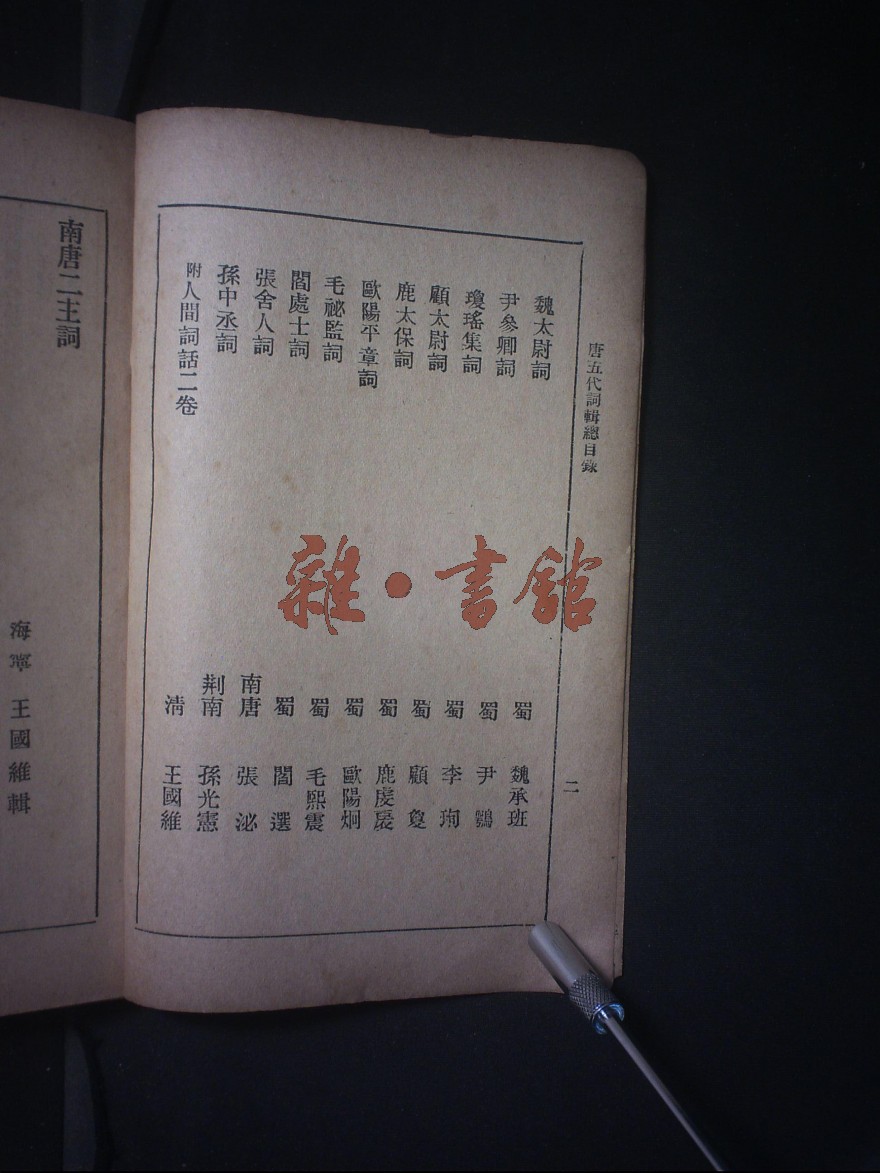 唐五代詞輯總目錄
二
魏太尉詞 蜀 魏承班
尹參卿詞 蜀 尹鶚
瓊瑤集詞 蜀 李珣
顧太尉詞 蜀 顧敻
鹿太保詞 蜀 鹿虔扆
歐陽平章詞 蜀 歐陽炯
毛祕監詞 蜀 毛熙震
閻處士詞 蜀 閻選
張舍人詞 南唐 張泌
孫中丞詞 荆南 孫光憲
附人間詞話二卷 清 王國維
南唐二主詞
海寧 王國維輯
雜·書館